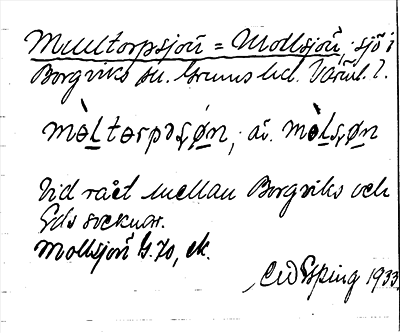 Mulltorpsjön = Mollsjön, sjö i
Borgviks sn. Grums hd. Värml. l.
mòltorpsʂø̀n, äv. mòlʂø̀n
Vid rået mellan Borgviks och
Eds socknar.
Mollsjön G. 70, ek.
1933